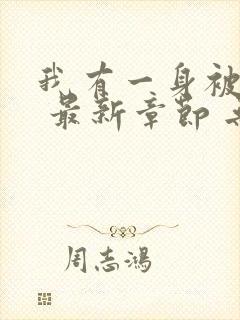 我有一身被
最新章节
周志鸿